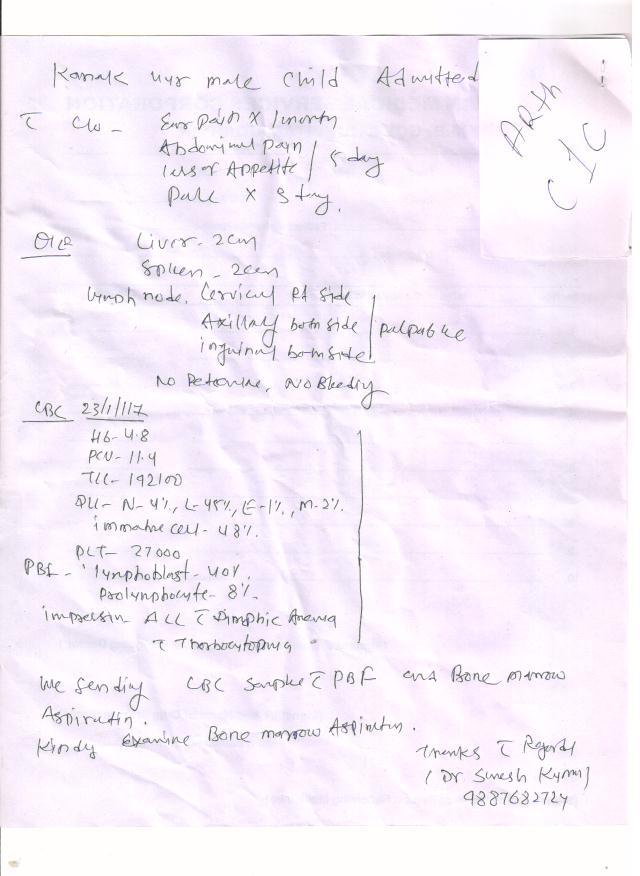 Kanak 4yr male child Admitted
ARTH
C1C
c̄ C/o - Ear pain X 1 month
Abdominal pain
loss of Appetite / 5 day
Pale X 3 day.
O/E
Liver - 2cm
Spleen - 2cm
lymph node. Cervical Rt side
Axillary both side palpable
inguinal both side
No Petechiae, No Bleeding
CBC 23/1/17
Hb - 4.8
PCV - 11.4
TLC - 192100
DLC - N - 4%, L - 45%, E - 1%, M - 2%.
immature cell - 48%.
PLT - 27000
PBF - lymphoblast - 40%.
Prolymphocyte - 8%.
impression ALL c̄ Dimorphic Anemia
c̄ Thrombocytopenia
We sending CBC sample c̄ PBF and Bone marrow
Aspiration.
Kindly examine Bone marrow Aspiration.
Thanks c̄ Regards
(Dr Suresh Kumar)
9887682724